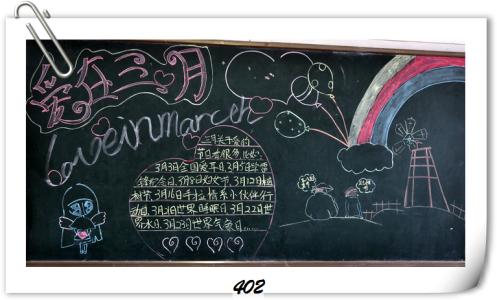 爱在三月
Love in march
三月关于爱的
节日有很多,比如:
3月3日全国爱耳日,3月5日学雷
锋纪念日,3月8日妇女节,3月12日植
树节,3月16日手拉手情系小伙伴行
动日,3月21日世界睡眠日,3月22日世
界水日,3月23日世界气象日......
402